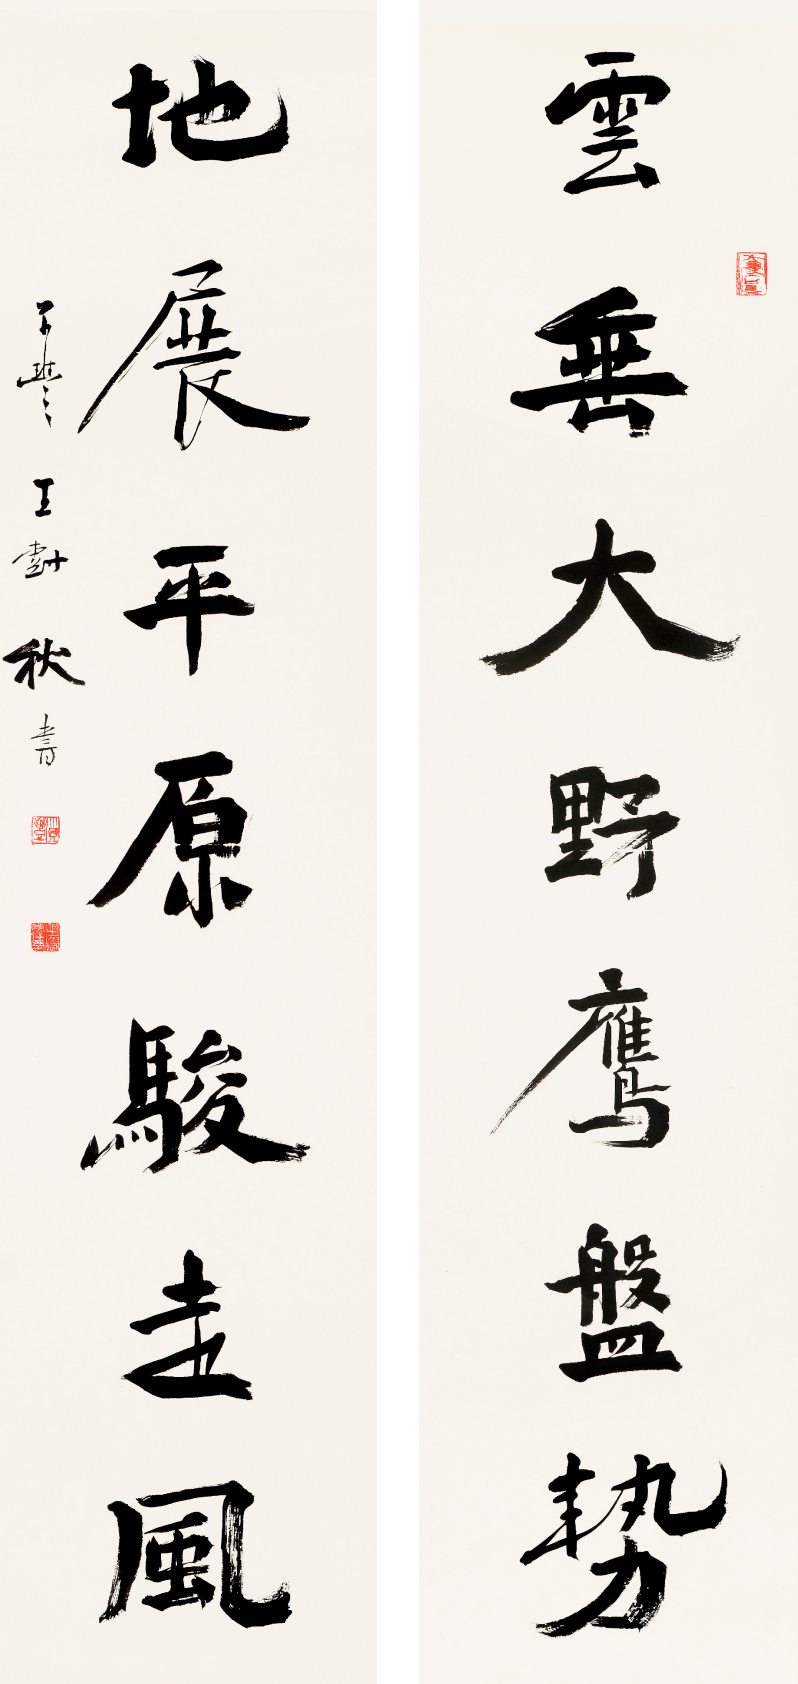 雲垂大野鹰盤勢
地展平原駿走風
王蘧
秋書